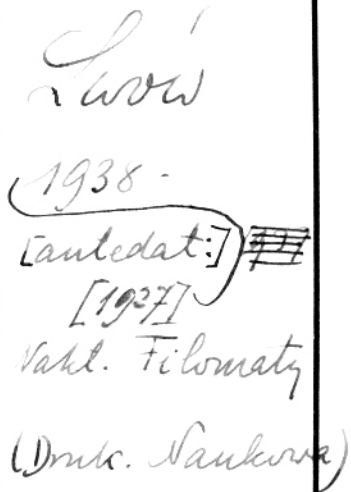 Lwów
1938 -
[antedat:]
[1937]
Nakł. Filomaty
(Druk. Naukowa)